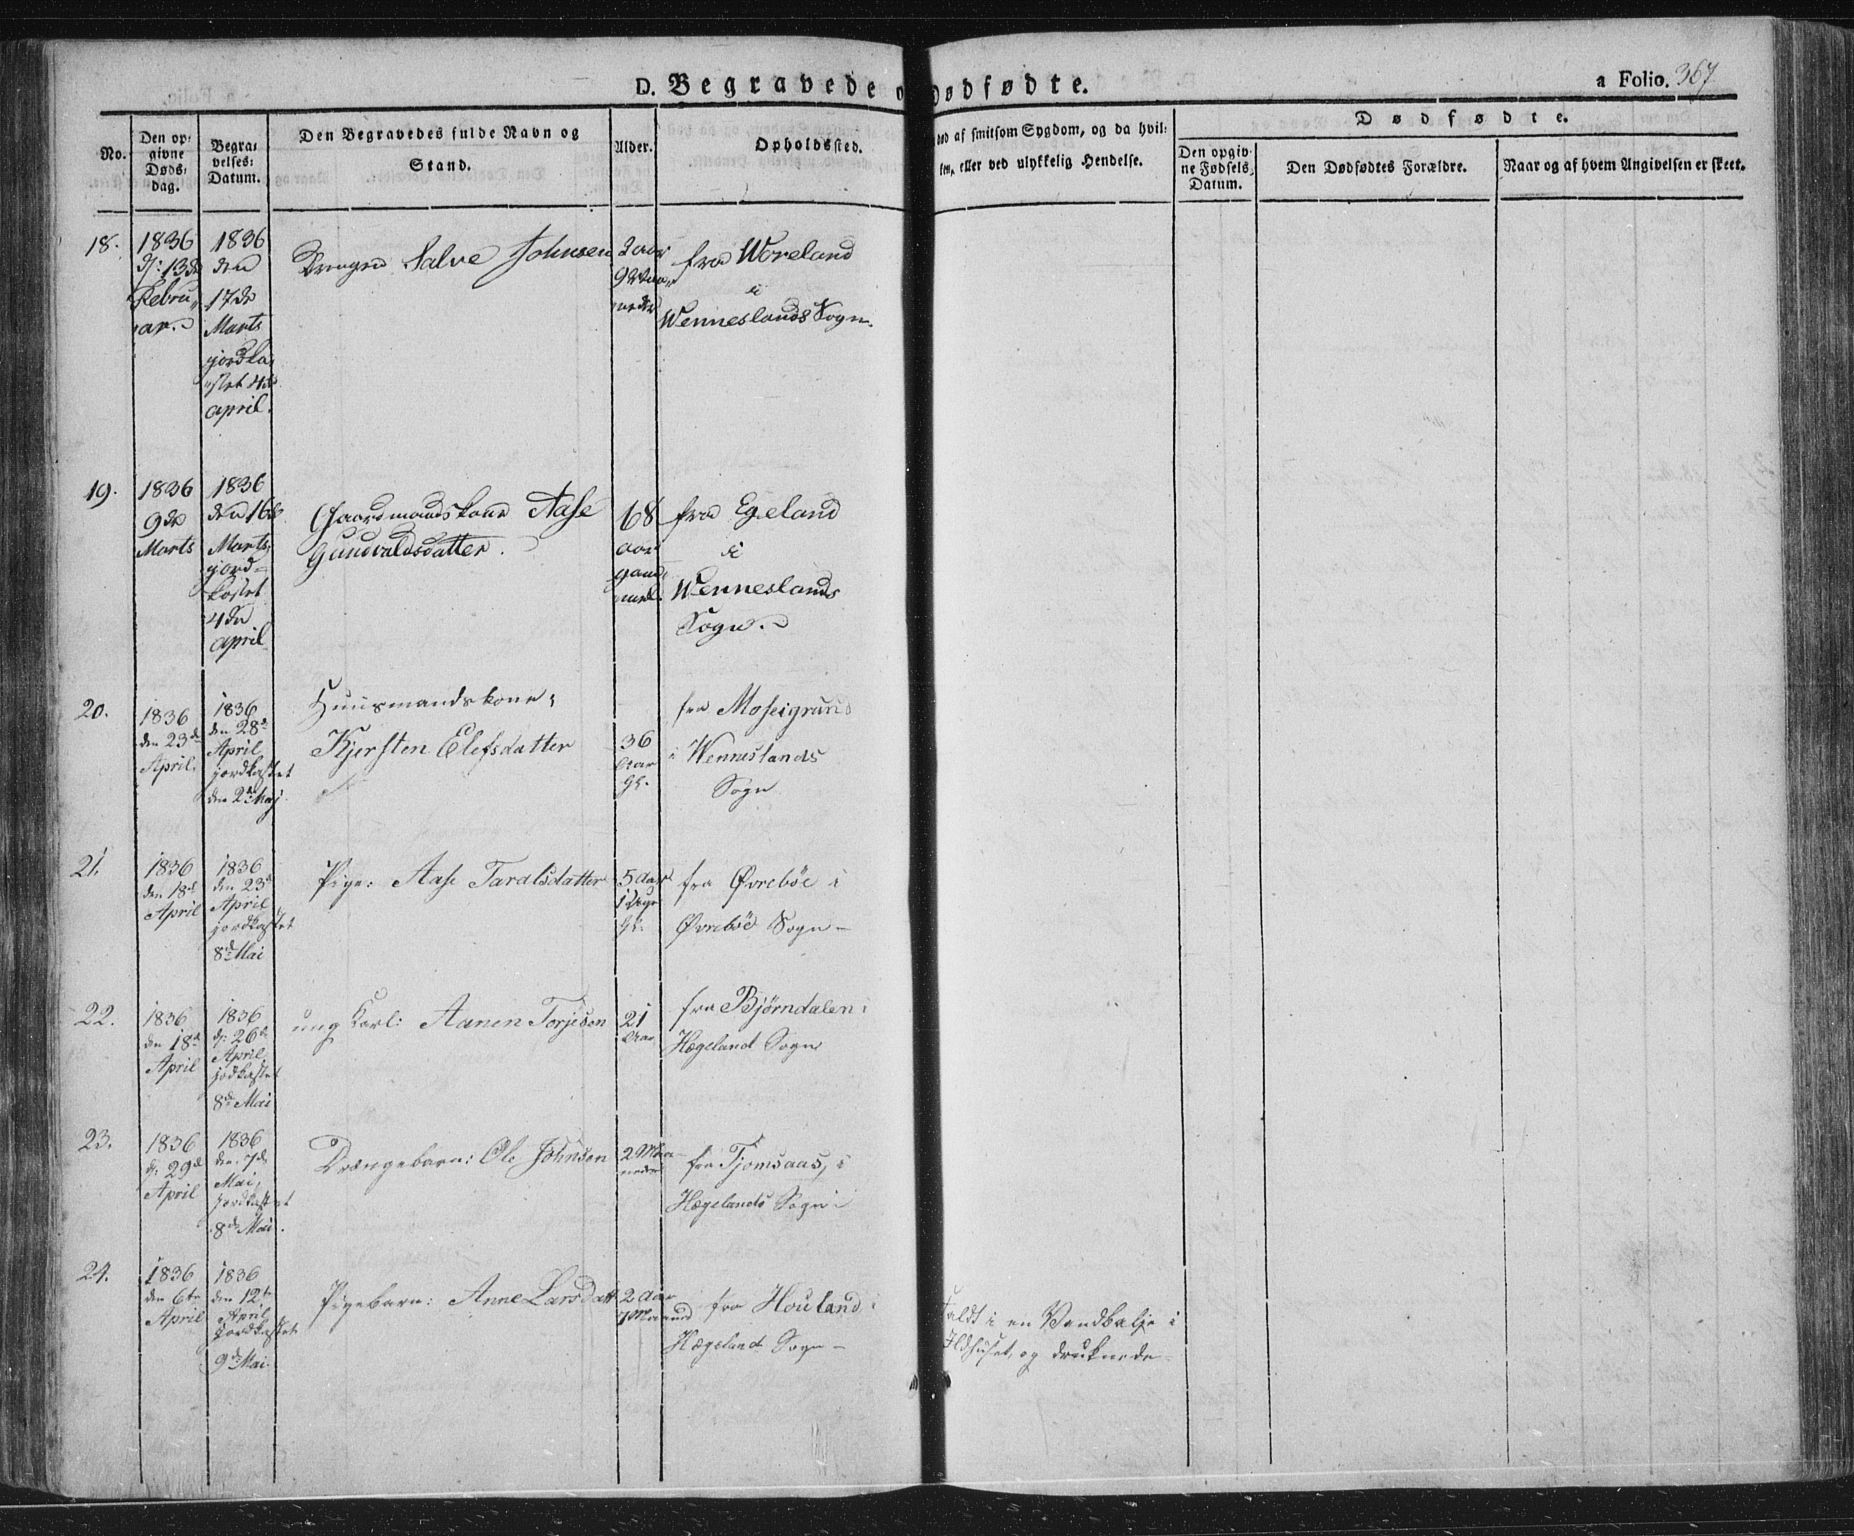 D. Begravede o
Dødfødte.
a Folio. 367
No.
Den op-
givne
Døds-
dag.
Begra-
velses-
Datum.
Den Begravedes fulde Navn og
Stand.
Alder.
Opholdssted.
Død af smitsom Sygdom, og da hvil-
ken, eller ved ulykkelig Hendelse.
Dødfødte.
Den opgiv-
ne Fødsels-
Datum.
Den Dødfødtes Forældre.
Naar og af hvem Angivelsen er skeet.
18.
1836
d: 13de
Febru
ar.
1836
den
17de
Marts
jordka
stet 4de
april.
Drengen Salve Johnsen
2 aar
9 Maa
neder
fra Woreland
i
Wenneslands Sogn.
19.
1836
9de
Marts
1836
den 16de
Marts
jord-
kastet
4de
april
Gaardmandskone Aase
Gundvaldsdatter.
68
aar
gam
mel.
fra Egeland
i
Wenneslands
Sogn.
20.
1836
den 23de
April.
1836
den 28de
April
jordkastet
den 2de Maj.
Huusmandskone,
Kjersten Elefsdatter
36
Aar
gl.
fra Moseigrund
i Wenneslands
Sogn
21.
1836
den 18de
April
1836
den 23de
April
jordkastet
8de Mai
Pige: Aase Taralsdatter
5 Aar
1 Uge
gl.
fra Øvrebøe i
Øvrebøe Sogn -
22.
1836
den 18de
April
1836
d: 26de
April
jordkastet
8de Mai
ung Karl: Aanen Torjesen
21
Aar
fra Bjørndalen i
Hægeland Sogn
23.
1836
d: 29de
April
1836
den 7de
Mai,
jordkastet
8de Mai.
Drængebarn: Ole Johnsen
2 Maa-
neder
fra Tjomsaas, i
Hægelands Sogn
24.
1836
den 6te
April
1836
den 12te
April
jordkastet
9de Mai
Pigebarn: Anne Larsdatt
2 Aar
Maaned
fra Houland i
Hægeland Sogn -
Faldt i en Vandbalje i
Ildhuset, og druknede -